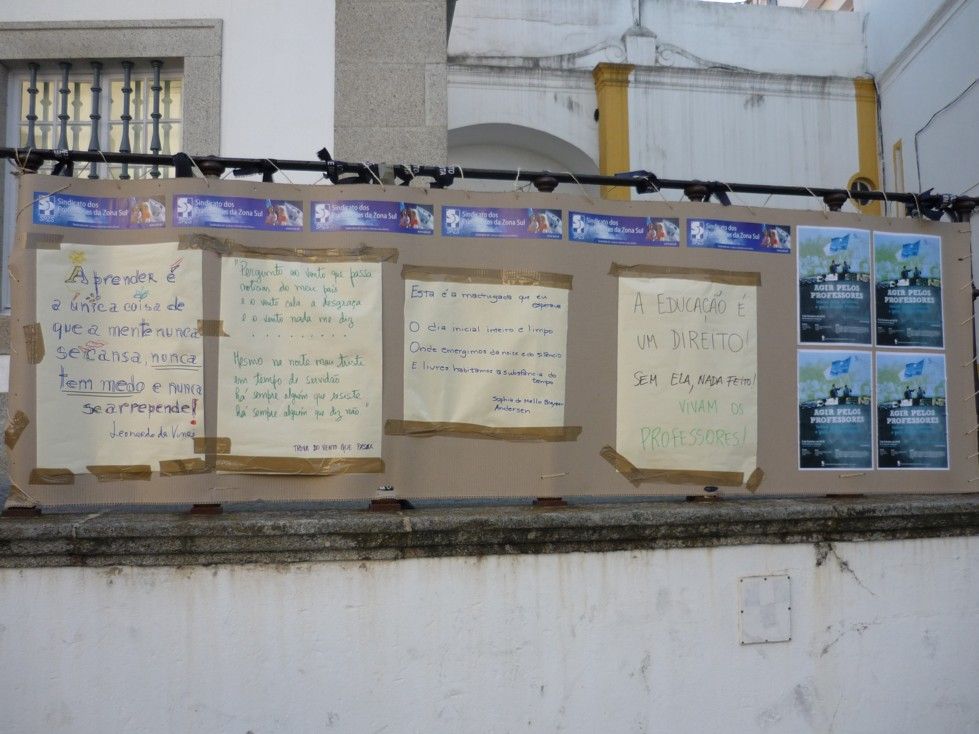 Sindicato dos
Professores da Zona Sul
Sindicato dos
Professores da Zona Sul
Sindicato dos
Professores da Zona Sul
Sindicato dos
Professores da Zona Sul
Sindicato dos
Professores da Zona Sul
Sindicato dos
Professores da Zona Sul
Aprender é
a única coisa de
que a mente nunca
se cansa, nunca
tem medo e nunca
se arrepende!
Leonardo da Vinci
"Pergunto ao vento que passa
notícias do meu país
e o vento cala a desgraça
e o vento nada me diz
..........
Mesmo na noite mais triste
em tempo de servidão
há sempre alguém que resiste
há sempre alguém que diz não"
TROVA DO VENTO QUE PASSA
Esta é a madrugada que eu
esperava
O dia inicial inteiro e limpo
Onde emergimos da noite e do silêncio
E livres habitamos a substância do
tempo
Sophia de Mello Breyner
Andersen
A EDUCAÇÃO É
UM DIREITO!
SEM ELA, NADA FEITO!
VIVAM OS
PROFESSORES!
AGIR PELOS
PROFESSORES
AGIR PELOS
PROFESSORES
AGIR PELOS
PROFESSORES
AGIR PELOS
PROFESSORES